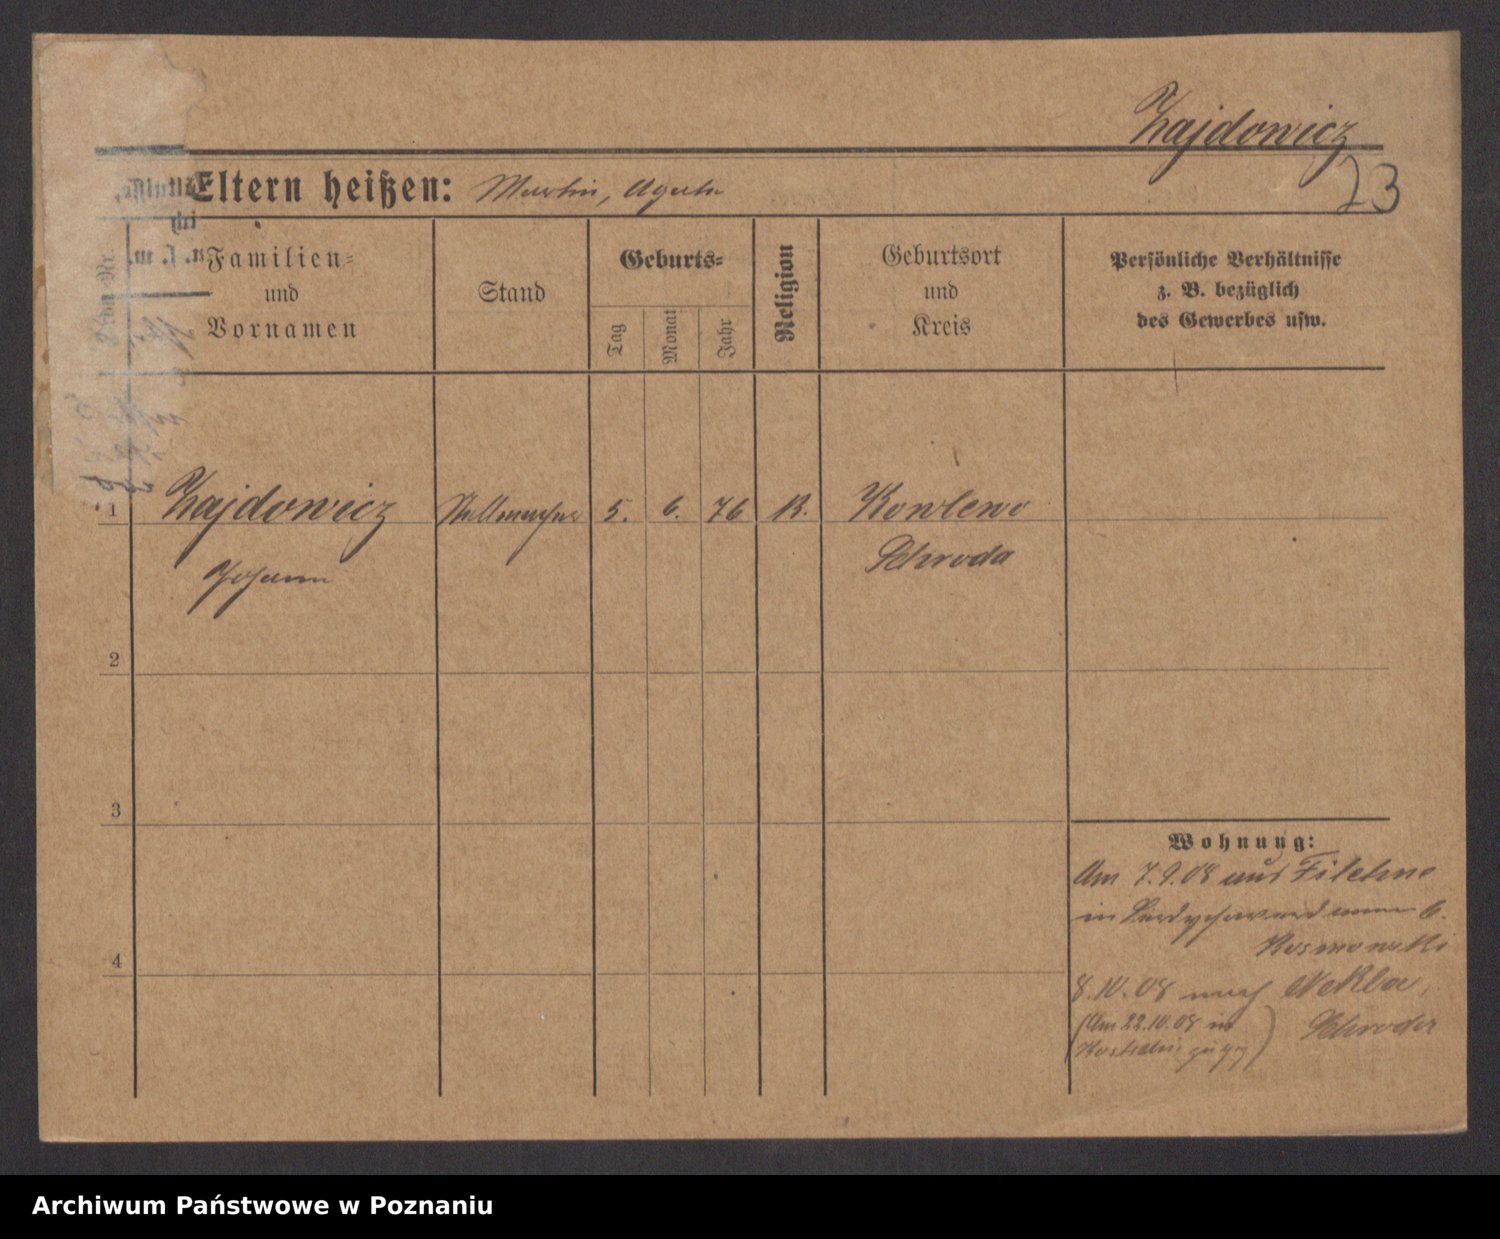 Zajdowicz
23
Eltern heißen: Martin, Agata
Lfde. Nr.
Familien-
und
Vornamen
Stand
Geburts-
Tag
Monat
Jahr
Religion
Geburtsort
und
Kreis
Persönliche Verhältnisse
z. B. bezüglich
des Gewerbes usw.
1
Zajdowicz
Stellmacher
5.
6.
76
K.
Kowlewo
Johann
Schroda
2
3
4
Wohnung:
Am 7.9.08 aus Filehne
in
8.10.08 nach Nekla,
(Am 22.10.08 in
Schroda
Kostschin zugzg)
Archiwum Państwowe w Poznaniu